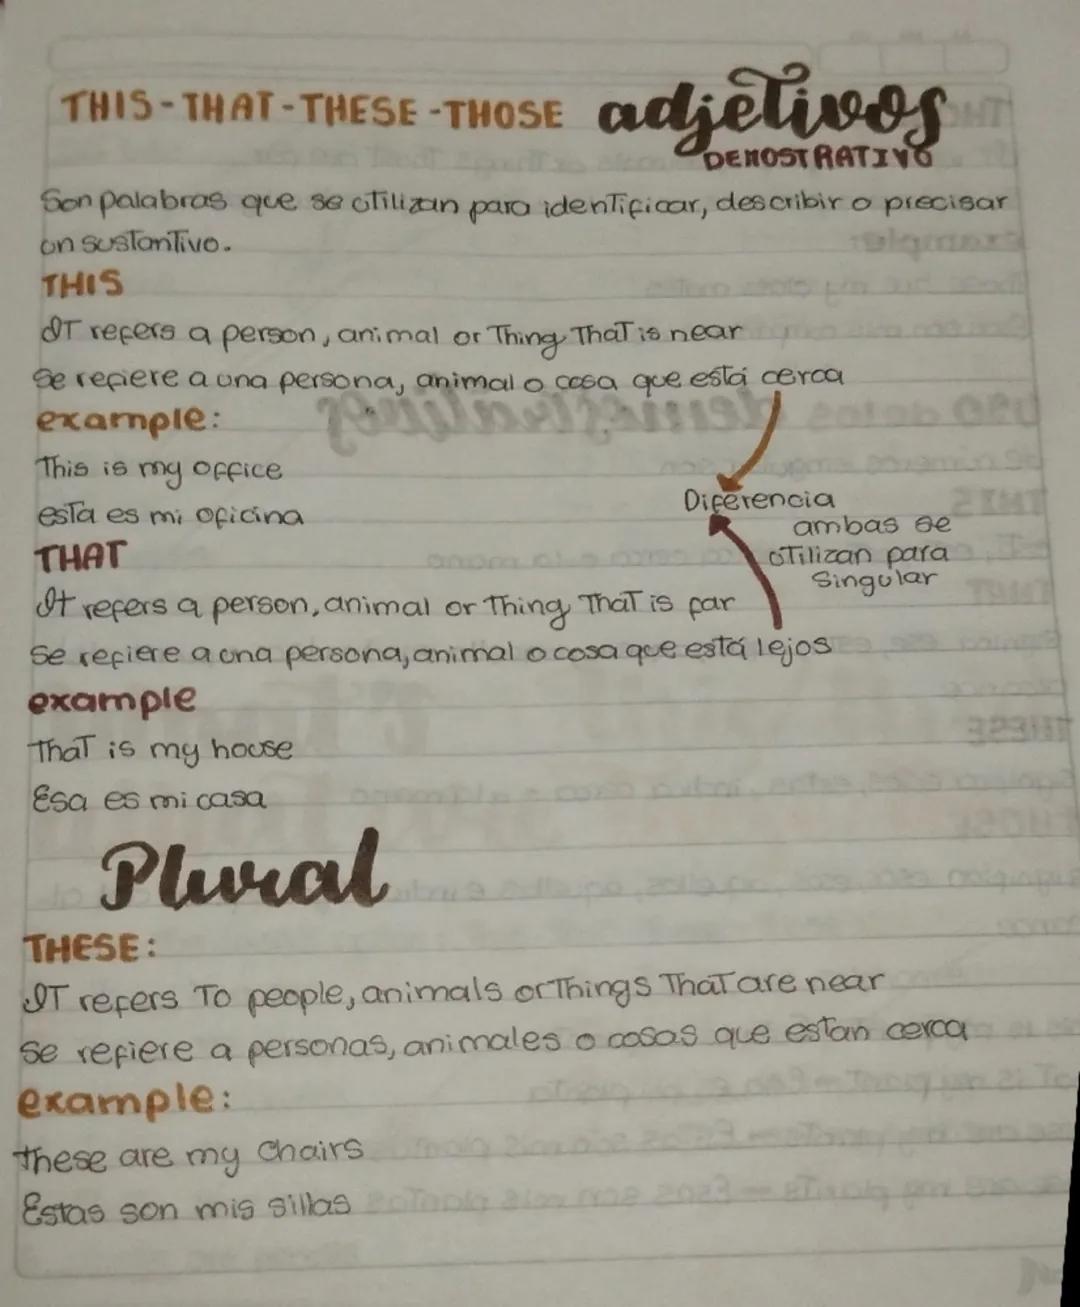 THIS-THAT-THESE-THOSE adjetivos
DEMOSTRATIVO
Son palabras que se utilizan para identificar, describir o precisar
un sustantivo.
THIS
IT refers a person, animal or Thing That is near
Se refiere a una persona, animal o cosa que está cerca
example:
This is my office
esta es mi oficina
Diferencia
ambas se
utilizan para
Singular
THAT
It refers a person, animal or thing That is far
Se refiere a una persona, animal o cosa que está lejos
example
That is my house
Esa es mi casa
Plural
THESE:
IT refers To people, animals or Things That are near
Se refiere a personas, animales o cosas que estan cerca
example:
these are my chairs
Estas son mis sillas